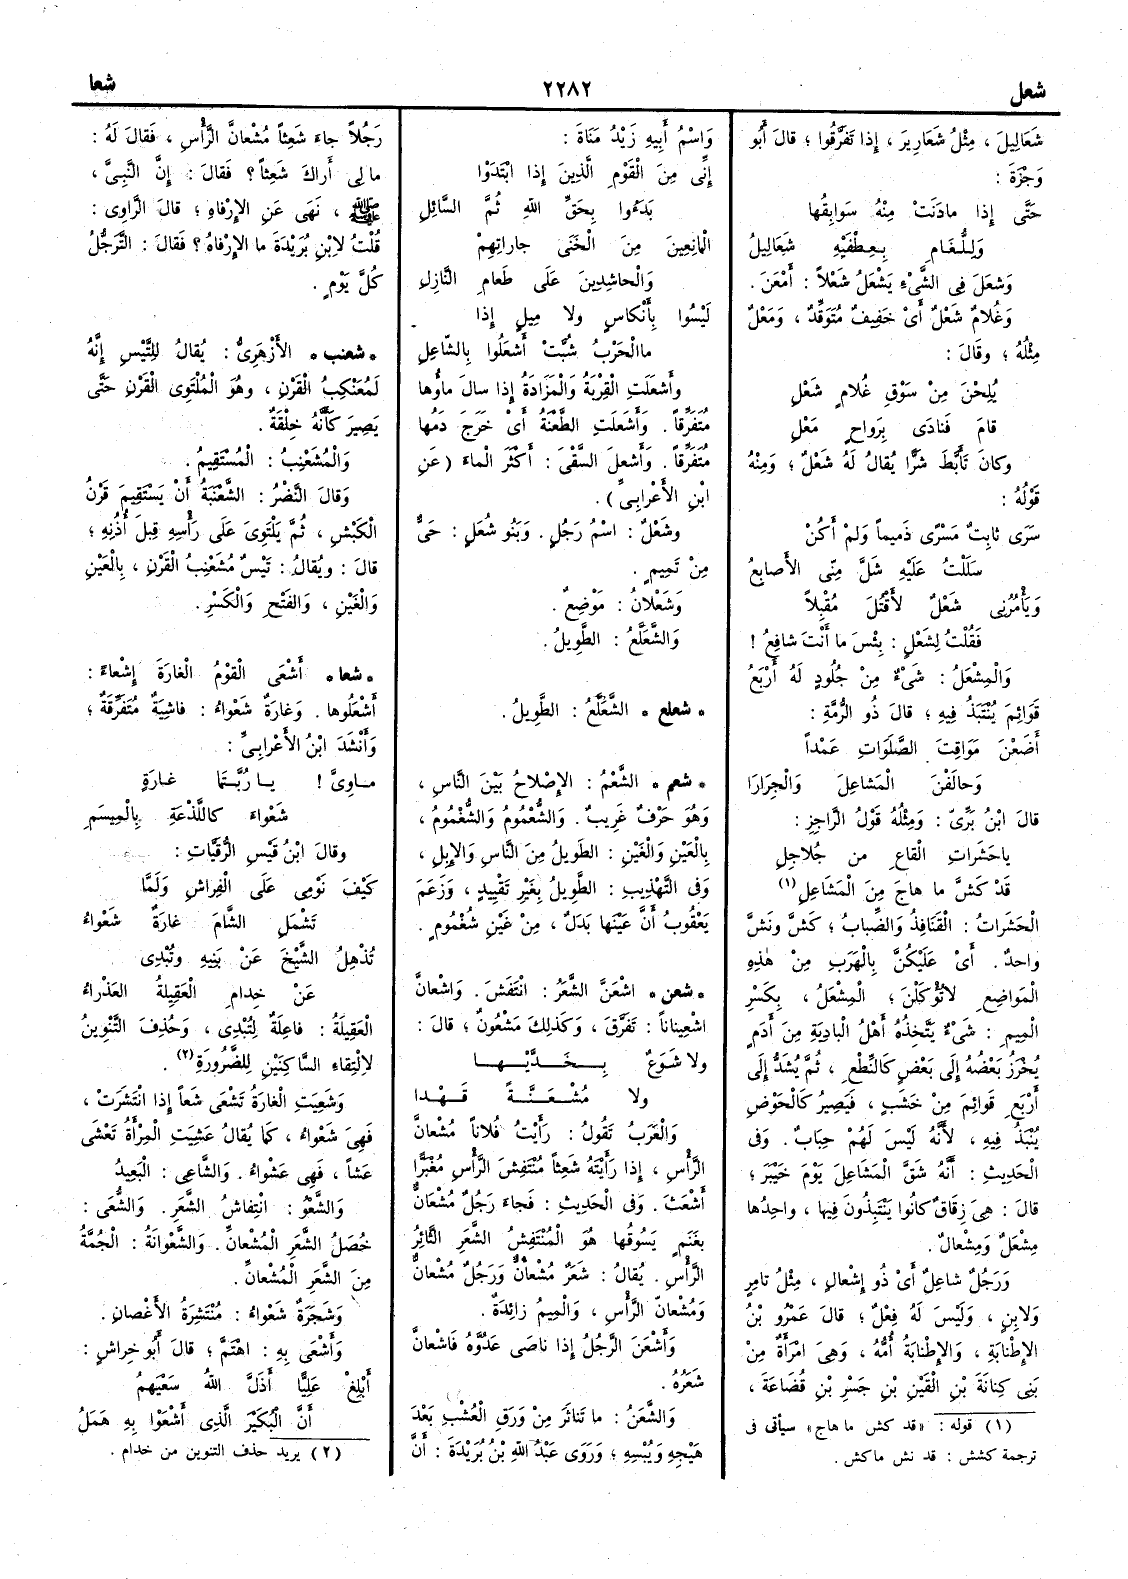 شعل
٢٢٨٢
شعا
شَعالِيلَ ، مِثْلُ شَعارِيرَ ، إِذا تَفَرَّقُوا ؛ قالَ أَبُو
وَجْزَةَ :
حَتَّى إِذا مادَنَتْ مِنْهُ سَوابِقُها
وَلِلُّغَامِ بِعِطْفَيْهِ شَعَالِيلُ
وَشَعَلَ فِى الشَّىْءِ يَشْعَلُ شَعْلاً : أَمْعَنَ .
وَغُلامٌ شَعْلٌ أَىْ خَفِيفٌ مُتَوَقِّدٌ ، وَمَعْلٌ
مِثْلُهُ ؛ وَقالَ :
يُلِحْنَ مِنْ سَوْقِ غُلامٍ شَعْلِ
قامَ فَنادَى بِرَواحٍ مَعْلِ
وكانَ تَأَبَّطَ شَرًّا يُقالُ لَهُ شَعْلٌ ؛ وَمِنْهُ
قَوْلُهُ :
سَرَى ثابِتٌ مَسْرًى ذَمِيماً وَلمْ أَكُنْ
سَلَلْتُ عَلَيْهِ شَلَّ مِنِّى الأَصابِعُ
وَيَأْمُرُنِى شَعْلٌ لأَقْتُلَ مُقْبِلاً
فَقُلْتُ لِشَعْلٍ : بِئْسَ ما أَنْتَ شافِعُ !
وَالْمِشْعَلُ : شَىْءٌ مِنْ جُلُودٍ لَهُ أَرْبَعُ
قَوائِمَ يُنْتَبَذُ فِيهِ ؛ قالَ ذُو الرُّمَّةِ :
أَضَعْنَ مَوَاقِتَ الصَّلَوَاتِ عَمْداً
وَحالَفْنَ الْمَشاعِلَ وَالْجِرَارَا
قالَ ابْنُ بَرِّىّ : وَمِثْلُهُ قَوْلُ الرَّاجِزِ :
ياحَشَراتِ الْقاعِ من جُلاجِلِ
قَدْ كَشَّ ما هاجَ مِنَ الْمَشَاعِلِ(١)
الْحَشَراتُ : الْقَنافِذُ وَالضِّبابُ ؛ كَشَّ وَنَشَّ
واحِدٌ . أَىْ عَلَيْكُنَّ بِالْهَرَبِ مِنْ هٰذِهِ
الْمَواضِعِ لاتُؤْكَلْنَ ؛ الْمِشْعَلُ ، بِكَسْرِ
الْمِيمِ : شَىْءٌ يَتَّخِذُهُ أَهْلُ الْبادِيَةِ مِنَ أَدَمٍ
يُخْرَزُ بَعْضُهُ إِلَى بَعْضٍ كَالنِّطْعِ ، ثُمَّ يُشَدُّ إِلَى
أَرْبَعِ قَوائِمَ مِنْ خَشَبٍ ، فَيَصِيرُ كَالْحَوْضِ
يُنْبَذُ فِيهِ ، لأَنَّهُ لَيْسَ لَهُمْ حِبَابٌ . وَفى
الْحَدِيثِ : أَنَّهُ شَقَّ الْمَشاعِلَ يَوْمَ خَيْبَرَ ؛
قالَ : هِىَ زِقاقٌ كانُوا يَنْتَبِذُونَ فِيها ، واحِدُها
مِشْعَلٌ وَمِشْعالٌ .
وَرَجُلٌ شاعِلٌ أَىْ ذُو إِشْعالٍ ، مِثْلُ تامِرٍ
وَلابِنٍ ، وَلَيْسَ لَهُ فِعْلٌ ؛ قالَ عَمْرُو بْنُ
الإِطْنابَةِ ، وَالإِطْنابَةُ أُمُّهُ ، وَهِىَ امْرَأَةٌ مِنْ
بَنِى كِنَانَةَ بْنِ الْقَيْنِ بْنِ جَسْرِ بْنِ قُضَاعَةَ ،
(١) قوله : «قد كش ما هاج» سيأتى فى
ترجمة كشش : قد نش ماكش .
وَاسْمُ أَبِيهِ زَيْدُ مَنَاةَ :
إِنِّى مِنَ الْقَوْمِ الَّذِينَ إِذا ابْتَدَوْا
بَدَءُوا بِحَقِّ اللهِ ثُمَّ السَّائِلِ
الْمانِعِينَ مِنَ الْخَنَى جاراتِهِمْ
وَالْحاشِدِينَ عَلَى طَعامِ النَّازِلِ
لَيْسُوا بِأَنْكاسٍ ولا مِيلٍ إِذا
ماالْحَرْبُ شُبَّتْ أَشْعَلُوا بِالشَّاعِلِ
وأَشْعَلَتِ الْقِرْبَةُ وَالْمَزادَةُ إِذا سالَ ماؤُها
مُتَفَرِّقاً . وَأَشْعَلَتِ الطَّعْنَةُ أَىْ خَرَجَ دَمُها
مُتَفَرِّقاً . وَأَشْعلَ السَّقْىَ : أَكْثَرَ الْماءَ ( عَنِ
ابْنِ الأَعْرابِىِّ ) .
وشَعْلٌ : اسْمُ رَجُلٍ . وَبَنُو شُعَلٍ : حَىٌّ
مِنْ تَمِيمٍ .
وَشَعْلانُ : مَوْضِعٌ .
وَالشَّعَلَّعُ : الطَّوِيلُ .
• شعلع • الشَّعَلَّعُ : الطَّوِيلُ .
• شعم • الشَّعْمُ : الإِصْلاحُ بَيْنَ النَّاسِ ،
وَهُوَ حَرْفٌ غَرِيبٌ . وَالشُّعْمُومُ وَالشُّغْمُومُ ،
بِالْعَيْنِ وَالْغَيْنِ : الطَّوِيلُ مِنَ النَّاسِ وَالإِبِلِ ،
وَفى التَّهْذِيبِ : الطَّوِيلُ بِغَيْرِ تَقْيِيدٍ ، وَزَعَمَ
يَعْقُوبُ أَنَّ عَيْنَها بَدَلٌ ، مِنْ غَيْنِ شُغْمُومٍ .
• شعن • اشْعَنَّ الشَّعَرُ : انْتَفَشَ . وَاشْعانَّ
اشْعِيناناً : تَفَرَّقَ ، وَكَذلِكَ مَشْعُونٌ ؛ قالَ :
ولا شَوَعٌ بِخَدَّيْها
ولا مُشْعَنَّةً قَهْدا
وَالْعَرَبُ تَقُولُ : رَأَيْتُ فُلاناً مُشْعانَّ
الرَّأْسِ ، إِذا رَأَيْتَهُ شَعِثاً مُنْتَفِشَ الرَّأْسِ مُغْبَرًّا
أَشْعَثَ . وَفى الْحَدِيثِ : فَجاءَ رَجُلٌ مُشْعانٌّ
بِغَنَمٍ يَسُوقُها هُوَ الْمُنْتَفِشُ الشَّعَرِ الثَّائِرُ
الرَّأْسِ . يُقالُ : شَعَرٌ مُشْعانٌّ وَرَجُلٌ مُشْعانٌّ
وَمُشْعانُّ الرَّأْسِ ، وَالْمِيمُ زائِدَةٌ .
وَأَشْعَنَ الرَّجُلُ إِذا ناصَى عَدُوَّهُ فَاشْعانَّ
شَعَرُهُ .
وَالشَّعَنُ : ما تَناثَرَ مِنْ وَرَقِ الْعُشْبِ بَعْدَ
هَيْجِهِ وَيُبْسِهِ ؛ وَرَوَى عَبْدُ اللهِ بْنُ بُرَيْدَةَ : أَنَّ
رَجُلاً جاءَ شَعِثاً مُشْعانَّ الرَّأْسِ ، فَقالَ لَهُ :
مالِى أَراكَ شَعِثاً ؟ فَقالَ : إِنَّ النَّبِىَّ ،
ﷺ ، نَهَى عَنِ الإِرْفاهِ ؛ قالَ الرَّاوِى :
قُلْتُ لاِبْنِ بُرَيْدَةَ ما الإِرْفاهُ ؟ فَقالَ : التَّرَجُّلُ
كُلَّ يَوْمٍ .
• شعنب • الأَزْهَرِىُّ : يُقالُ لِلتَّيْسِ إِنَّهُ
لَمُعَنْكِبُ الْقَرْنِ ، وَهُوَ الْمُلْتَوِى الْقَرْنِ حَتَّى
يَصِيرَ كَأَنَّهُ حَلْقَةٌ .
وَالْمُشَعْنِبُ : الْمُسْتَقِيمُ .
وَقالَ النَّضْرُ : الشَّعْنَبَةُ أَنْ يَسْتَقِيمَ قَرْنُ
الْكَبْشِ ، ثُمَّ يَلْتَوِىَ عَلَى رَأْسِهِ قِبَلَ أُذُنِهِ ؛
قالَ : وَيُقالُ : تَيْسٌ مُشَعْنِبُ الْقَرْنِ ، بِالْعَيْنِ
وَالْغَيْنِ ، وَالْفَتْحِ وَالْكَسْرِ .
• شعا • أَشْعَى الْقَوْمُ الْغارَةَ إِشْعاءً :
أَشْعَلُوها . وَغارَةٌ شَعْواءُ : فاشِيَةٌ مُتَفَرِّقَةٌ ؛
وَأَنْشَدَ ابْنُ الأَعْرابِىِّ :
ماوِىَّ ! يارُبَّتَما غارَةٍ
شَعْواءَ كاللَّذْعَةِ بِالْمِيسَمِ
وقالَ ابْنُ قَيْسِ الرُّقَيَّاتِ :
كَيْفَ نَوْمِى عَلَى الْفِراشِ وَلَمَّا
تَشْمَلِ الشَّامَ غارَةٌ شَعْواءُ
تُذْهِلُ الشَّيْخَ عَنْ بَنِيهِ وَتُبْدِى
عَنْ خِدامِ الْعَقِيلَةُ الْعَذْراءُ
الْعَقِيلَةُ : فاعِلَةٌ لِتُبْدِى ، وَحُذِفَ التَّنْوِينُ
لاِلْتِقاءِ السَّاكِنَيْنِ لِلضَّرُورَةِ(٢) .
وَشَعِيَتِ الْغارَةُ تَشْعَى شَعاً إِذا انْتَشَرَتْ ،
فَهِىَ شَعْواءُ ، كَما يُقالُ عَشِيَتِ الْمَرْأَةُ تَعْشَى
عَشاً ، فَهِى عَشْواءُ . وَالشَّاعِى : الْبَعِيدُ
وَالشَّعْوُ : انْتِفاشُ الشَّعَرِ . وَالشُّعَى :
خُصَلُ الشَّعَرِ الْمُشْعانِّ . وَالشَّعْوانَةُ : الْجُمَّةُ
مِنَ الشَّعَرِ الْمُشْعانِّ .
وَشَجَرَةٌ شَعْواءُ : مُنْتَشِرَةُ الأَغْصانِ .
وَأَشْعَى بِهِ : اهْتَمَّ ؛ قالَ أَبُو خِراشٍ :
أَبْلِغْ عَلِيًّا أَذَلَّ اللهُ سَعْيَهمُ
أَنَّ الْبُكَيْرَ الَّذِى أَشْعَوْا بِهِ هَمَلُ
(٢) يريد حذف التنوين من خدام .